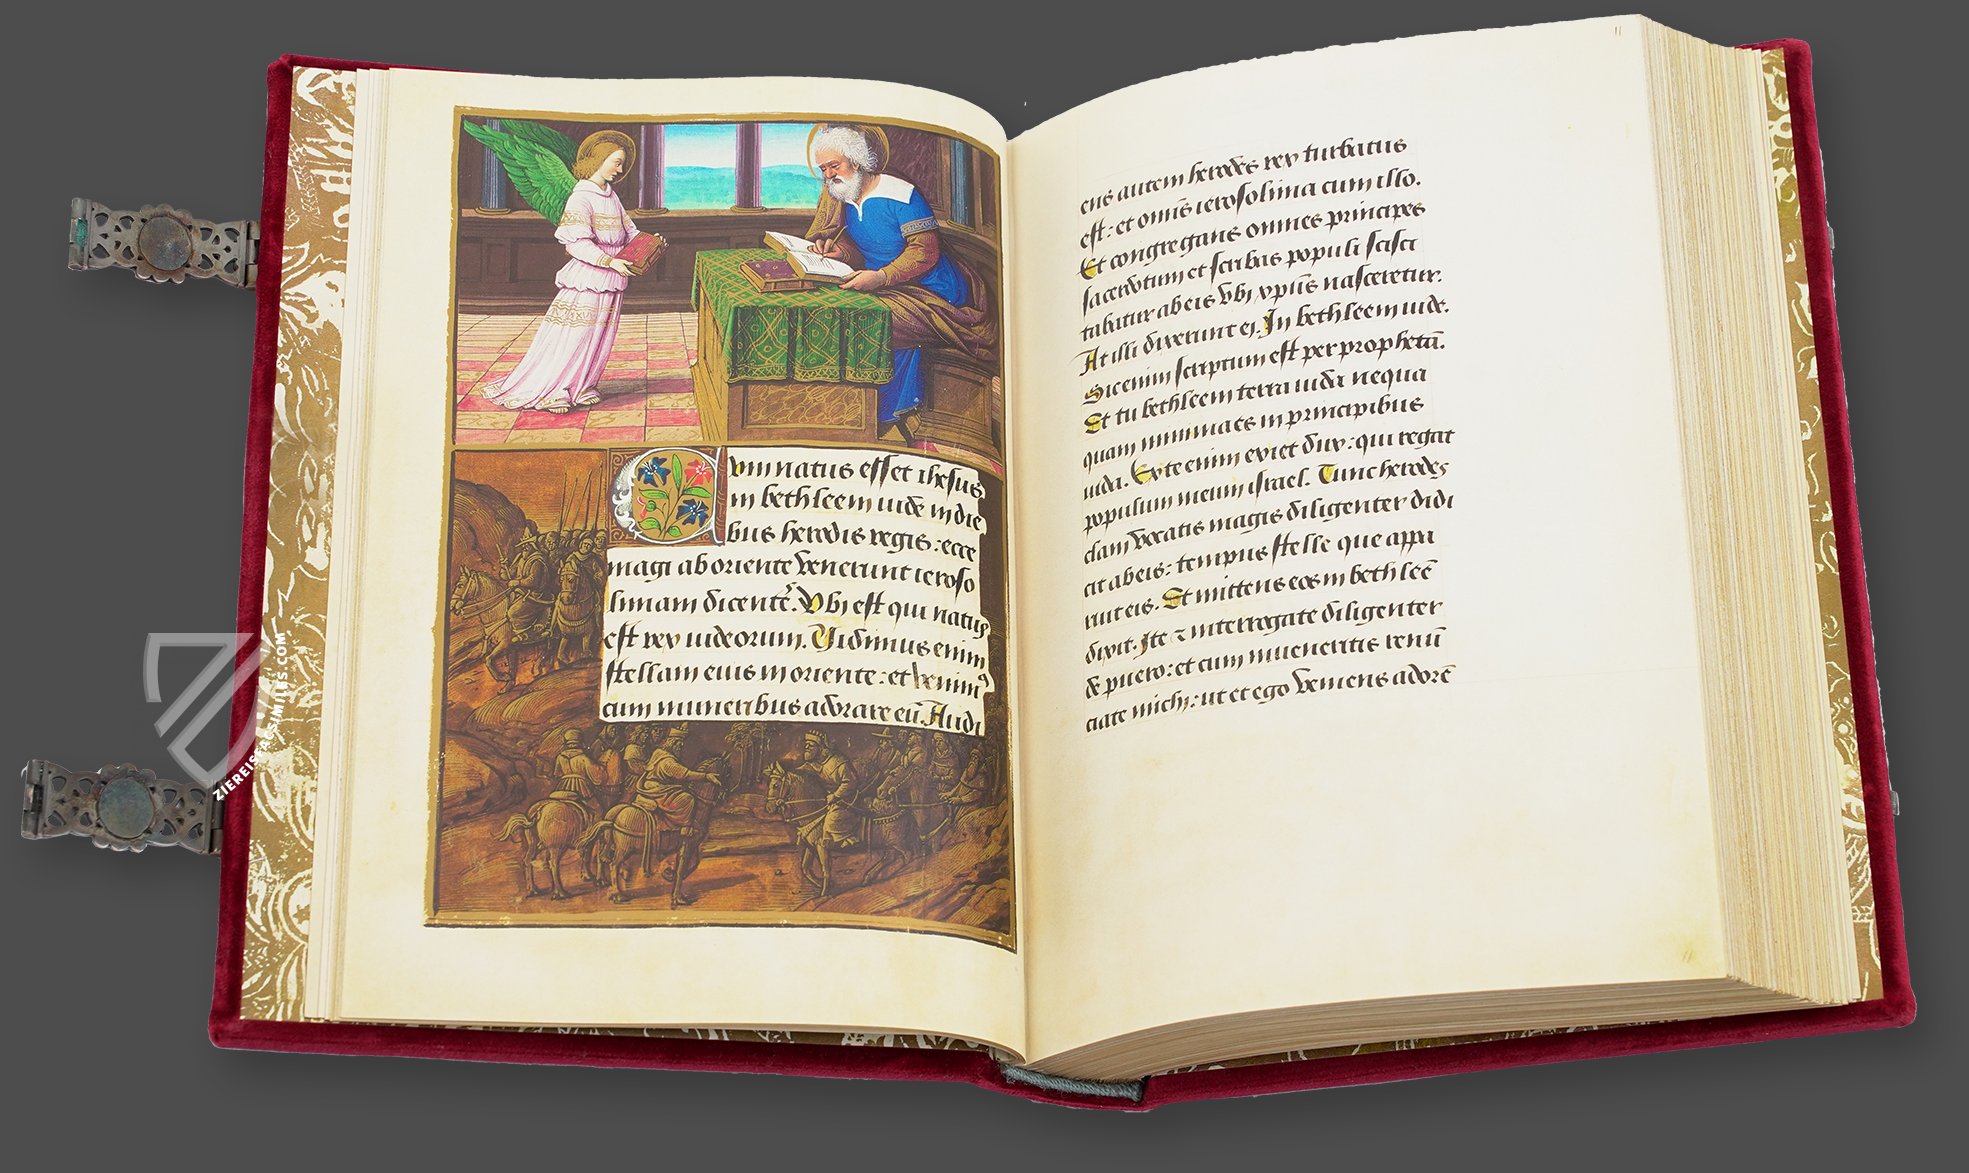 Cum natus esset ihesus
in bethleem iude in die
bus herodis regis: ecce
magi ab oriente venerunt ieroso
limam dicente᷒. Vbi est qui natus
est rex iudeorum. Vidimus enim
stellam eius in oriente: et venim᷒
cum muneribus adorare eū. Audi
ens autem herodes rex turbatus
est: et omīs ierosolima cum illo.
Et congregans omnes principes
sacerdotum et scribas populi scisci
tabatur ab eis vbi xp̄us nasceretur.
At illi dixerunt ei. In bethleem iude.
Sic enim scriptum est per prophetā.
Et tu bethleem terra iuda nequa
quam minima es in principibus
iuda. Ex te enim exiet dux: qui regat
populum meum israel. Tunc herodes
clam vocatis magis diligenter didi
cit ab eis: tempus stelle que appa
ruit eis. Et mittens eos in bethleē
dixit. Ite ⁊ interrogate diligenter
de puero: et cum inueneritis renū
ciate michi: ut et ego veniens adorē
11
ZIEREIS FACSIMILES.COM